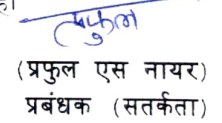 प्रफुल
(प्रफुल एस नायर)
प्रबंधक (सतर्कता)